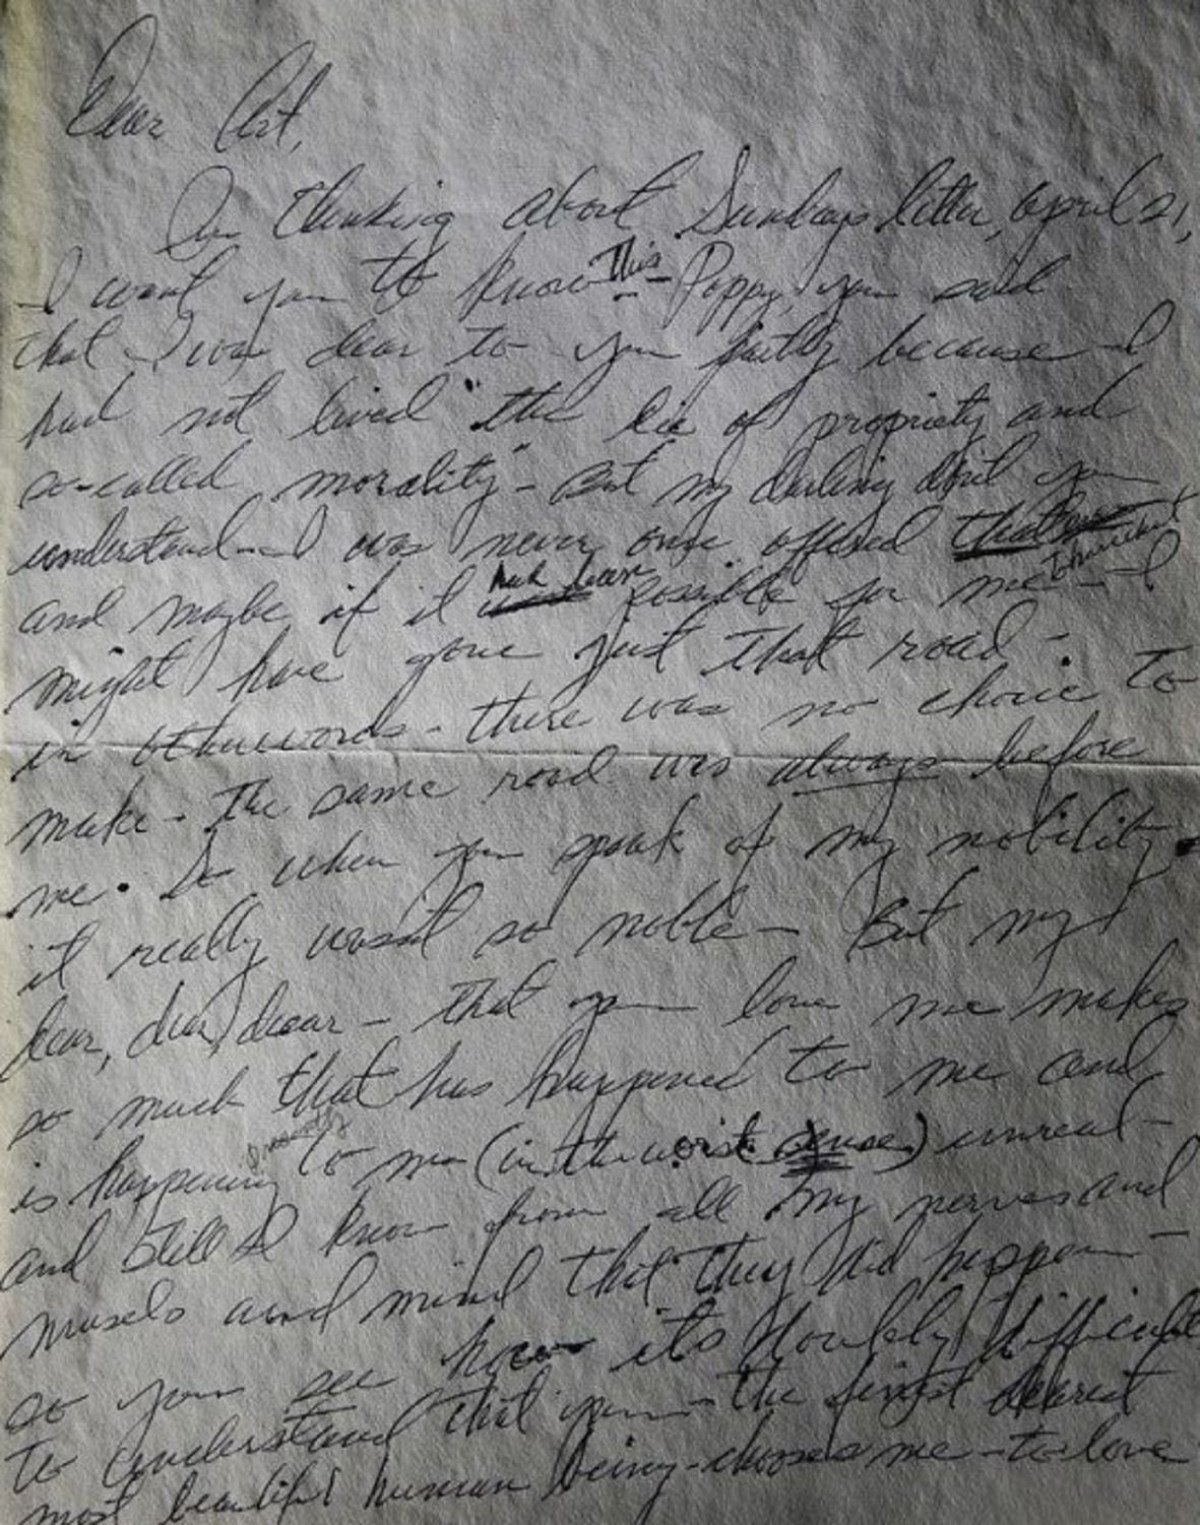 Dear Art,
In thinking about Sundays letter, april 21,
I want you to know This - Poppy, you said
that I was dear to you partly because I
had not lived "the lie of propriety and
so-called morality" - But my darling don't you
understand - I was never once offered that
and maybe if it had been possible for me - I
might have gone just that road -
in otherwords - there was no choice to
make - the same road was always before
me. So when you speak of my nobility
it really wasn't so noble - But my
dear, dear, deear - that you love me makes
so much that has happened to me and
is happening to me (in the worst sense) unreal -
and still I know from all my nerves and
musels and mind that they did happen -
so you see how its doubly difficult
to understand that you - the finest dearest
most beautiful human being - chooses me - to love